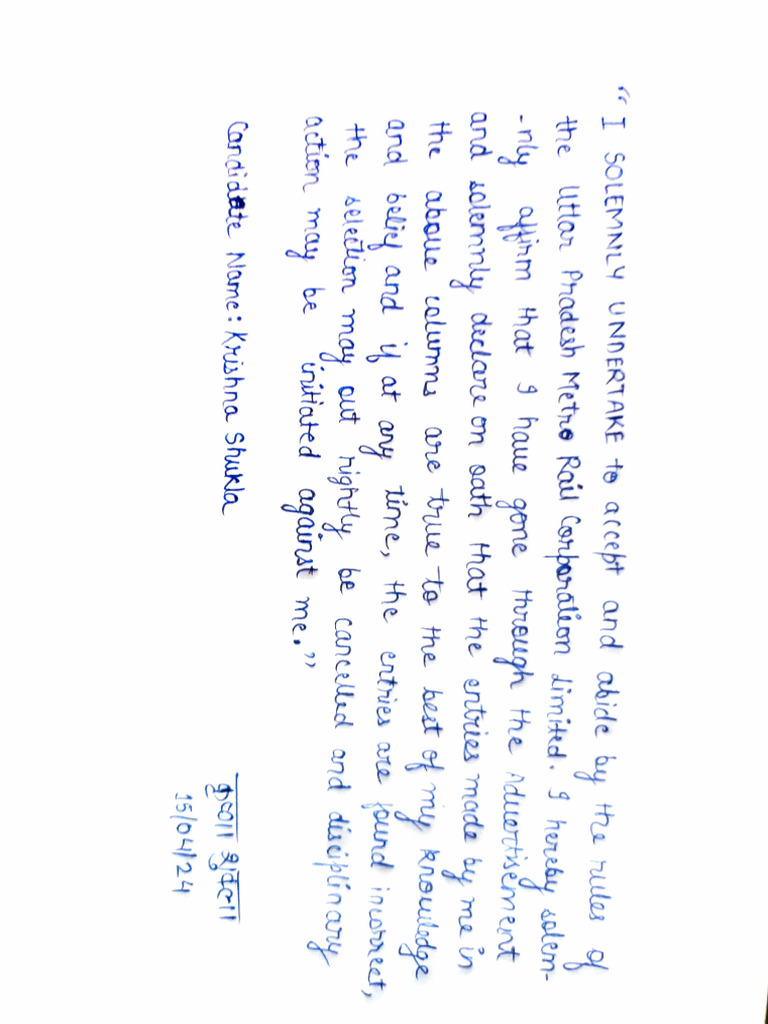 "I SOLEMNLY UNDERTAKE to accept and abide by the rules of
the Uttar Pradesh Metro Rail Corporation Limited. I hereby solem-
-nly affirm that I have gone through the Advertisement
and solemnly declare on oath that the entries made by me in
the above columns are true to the best of my knowledge
and belief and if at any time, the entries are found incorrect,
the selection may out rightly be cancelled and disciplinary
action may be initiated against me."
Candidate Name: Krishna Shukla
कृष्णा शुक्ला
15/04/24